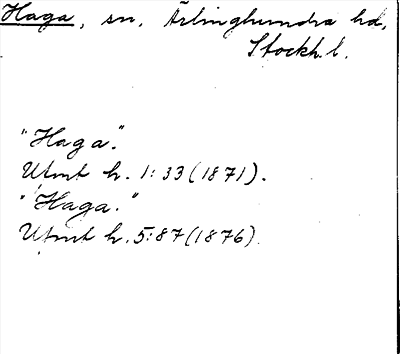 Haga, sn, Ärlinghundra hd,
Stockh. l.
"Haga".
Utmt h. 1:33 (1871).
"Haga."
Utmt h. 5:87 (1876).